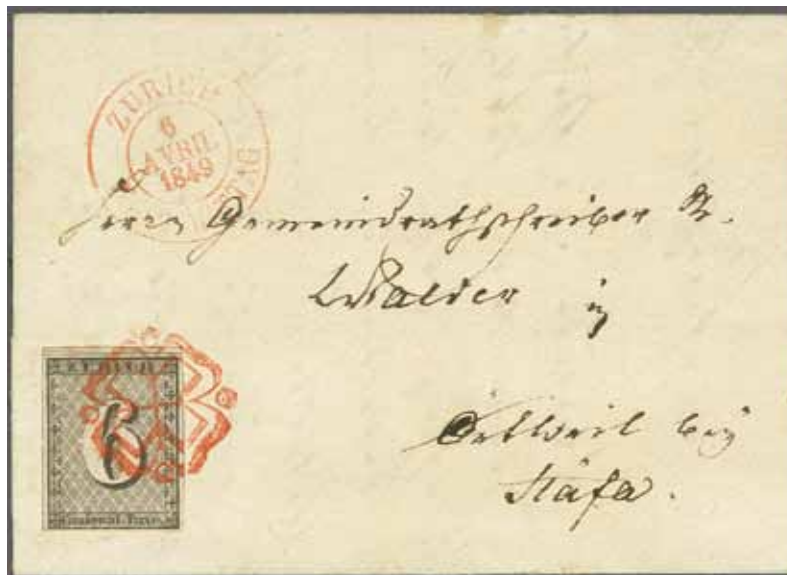 ZÜRICH
6
AVRIL
1849
Herrn Gemeindrathschreiber R.
Walder in
Oetweil bey
Stäfa.
ZURICH
6